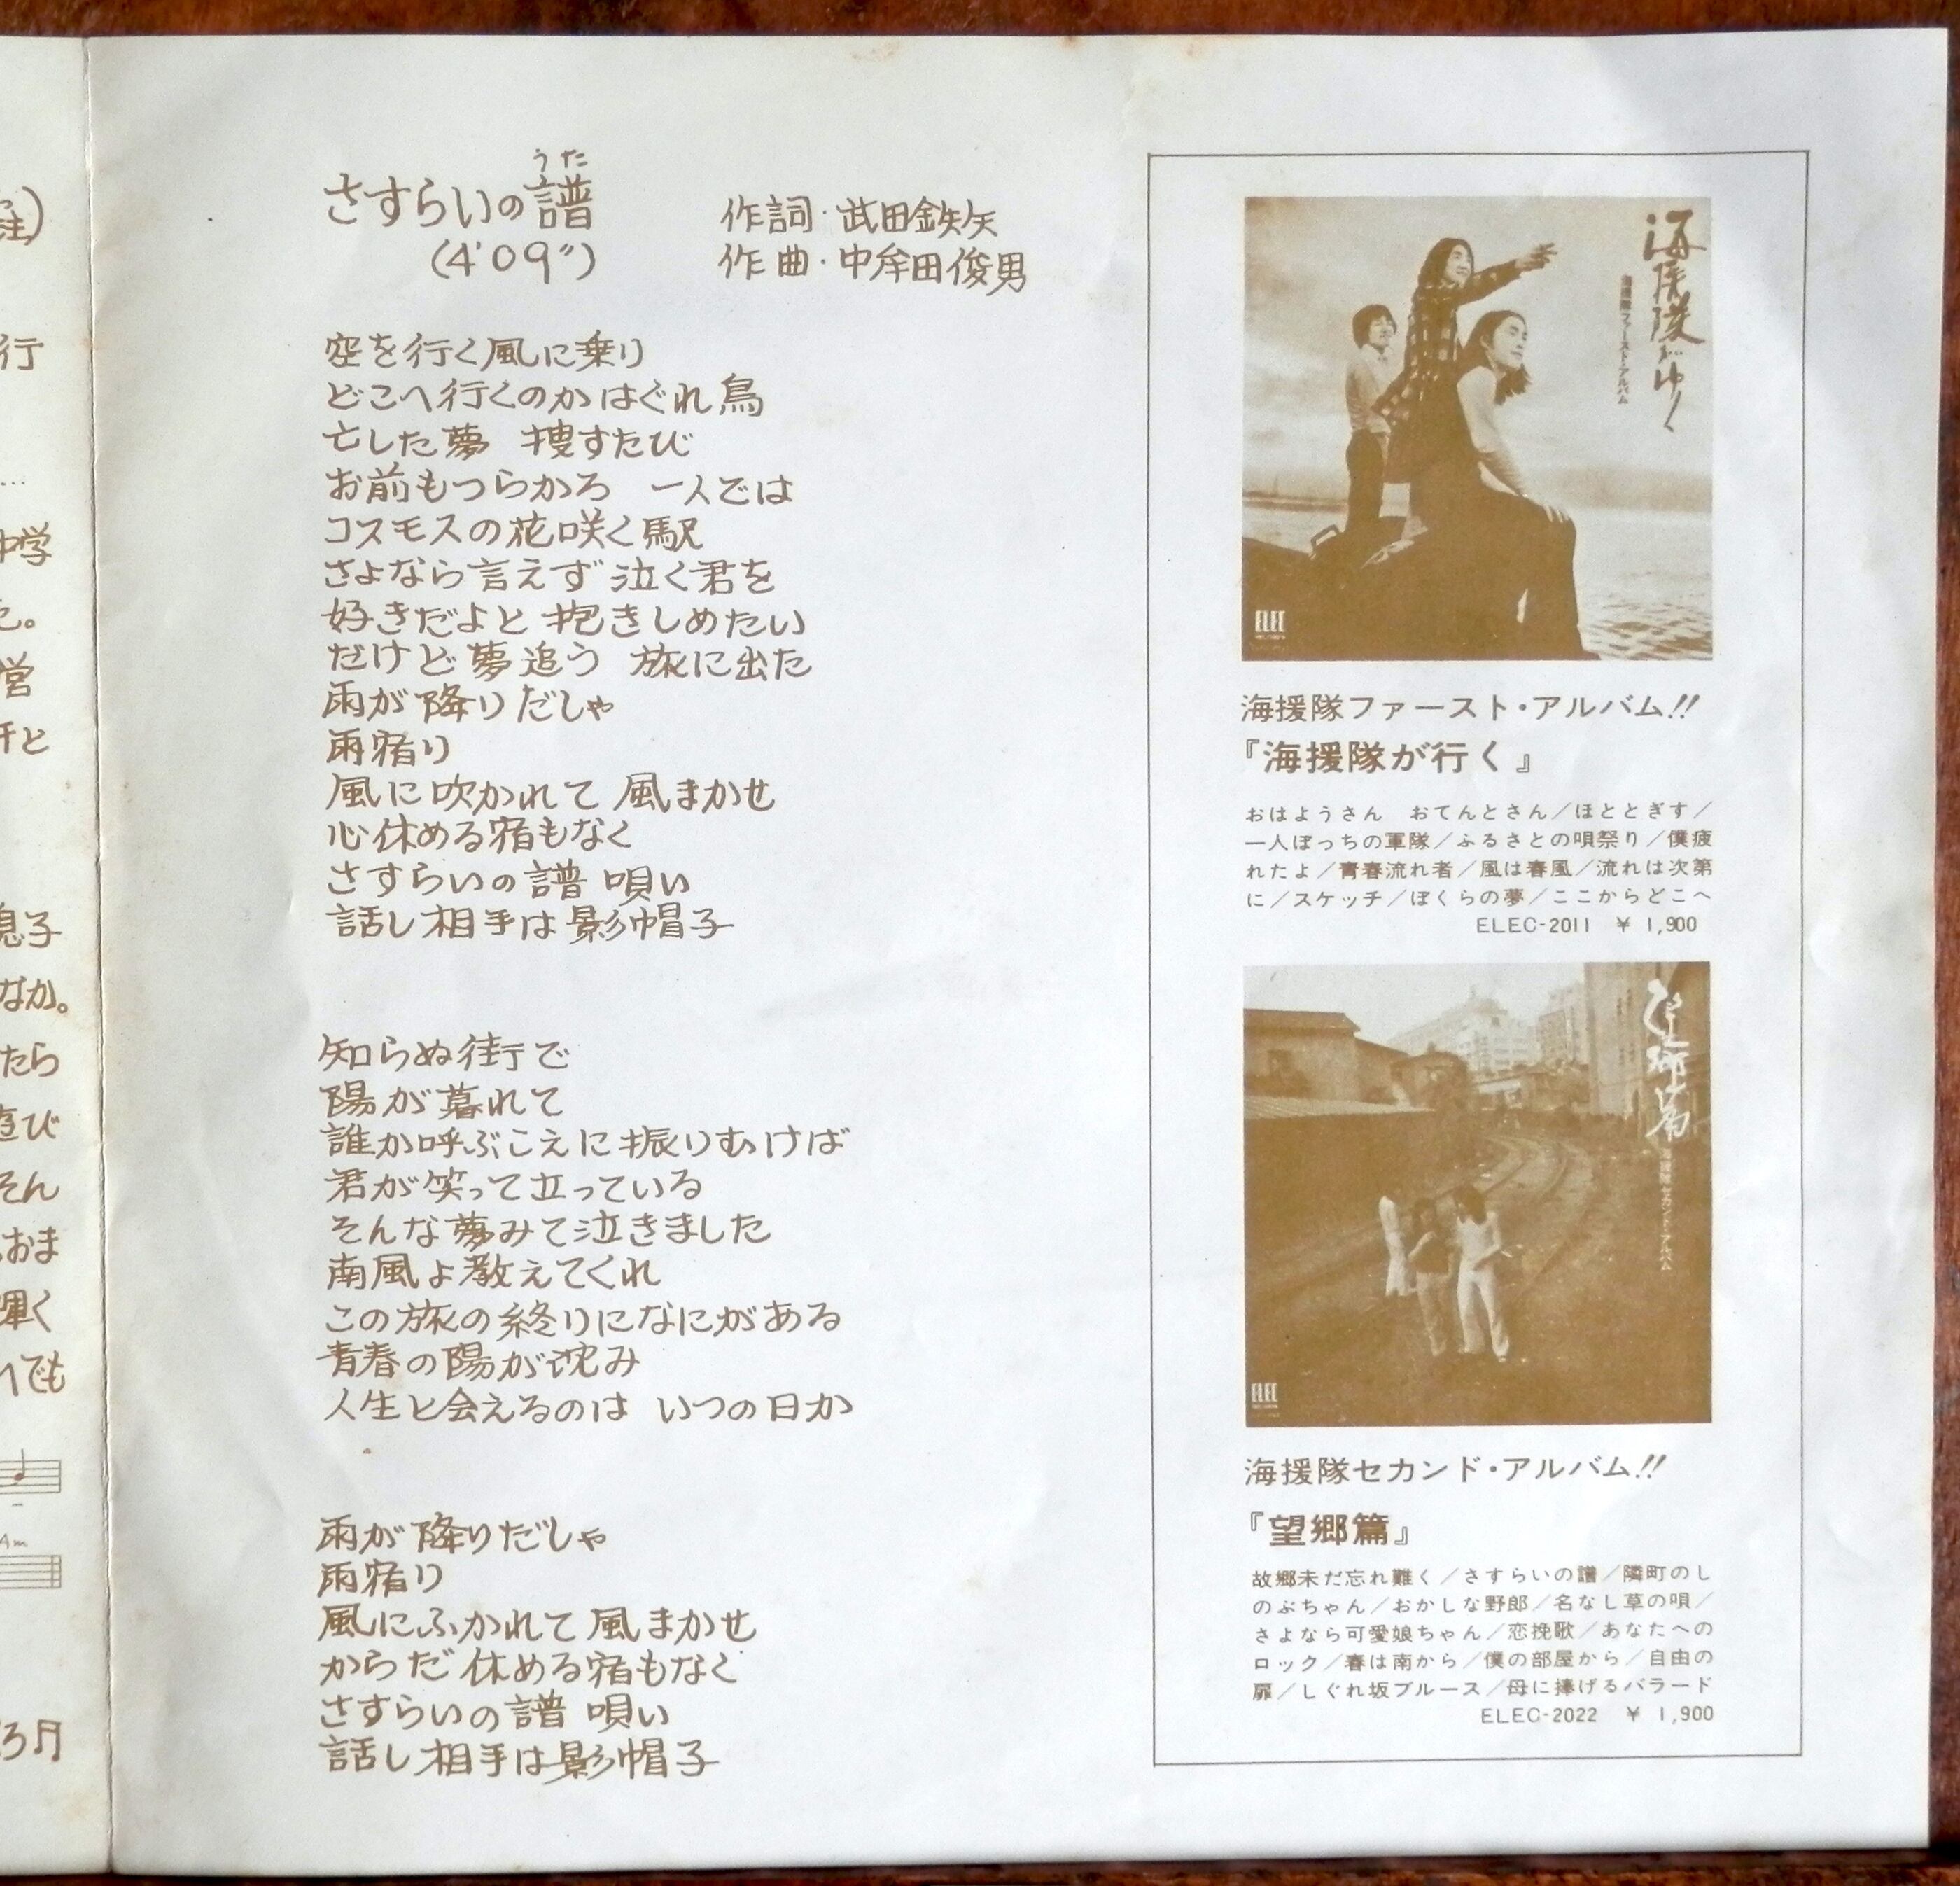 注)
行
…
中学
た。
営
汗と
息子
なか。
たら
遊び
そん
おま
輝く
でも
Am
3月
うた
さすらいの譜
(4'09")
作詞・武田鉄矢
作曲・中牟田俊男
空を行く風に乗り
どこへ行くのか はぐれ鳥
亡した夢 捜すたび
お前もつらかろ 一人では
コスモスの花咲く駅
さよなら言えず泣く君を
好きだよと抱きしめたい
だけど夢追う 旅に出た
雨が降りだしゃ
雨宿り
風に吹かれて 風まかせ
心休める宿もなく
さすらいの譜 唄い
話し相手は影帽子
知らぬ街で
陽が暮れて
誰か呼ぶこえに振りむけば
君が笑って立っている
そんな夢みて泣きました
南風よ教えてくれ
この旅の終りになにがある
青春の陽が沈み
人生と会えるのは いつの日か
雨が降りだしゃ
雨宿り
風にふかれて風まかせ
からだ休める宿もなく
さすらいの譜 唄い
話し相手は影帽子
海援隊がゆく
海援隊ファースト・アルバム
ELEC
海援隊ファースト・アルバム!!
『海援隊が行く』
おはようさん おてんとさん／ほととぎす／
一人ぼっちの軍隊／ふるさとの唄祭り／僕疲
れたよ／青春流れ者／風は春風／流れは次第
に／スケッチ／ぼくらの夢／ここからどこへ
ELEC-2011 ¥ 1,900
望郷篇
海援隊セカンド・アルバム
ELEC
海援隊セカンド・アルバム!!
『望郷篇』
故郷未だ忘れ難く／さすらいの譜／隣町のし
のぶちゃん／おかしな野郎／名なし草の唄／
さよなら可愛娘ちゃん／恋挽歌／あなたへの
ロック／春は南から／僕の部屋から／自由の
扉／しぐれ坂ブルース／母に捧げるバラード
ELEC-2022 ¥ 1,900